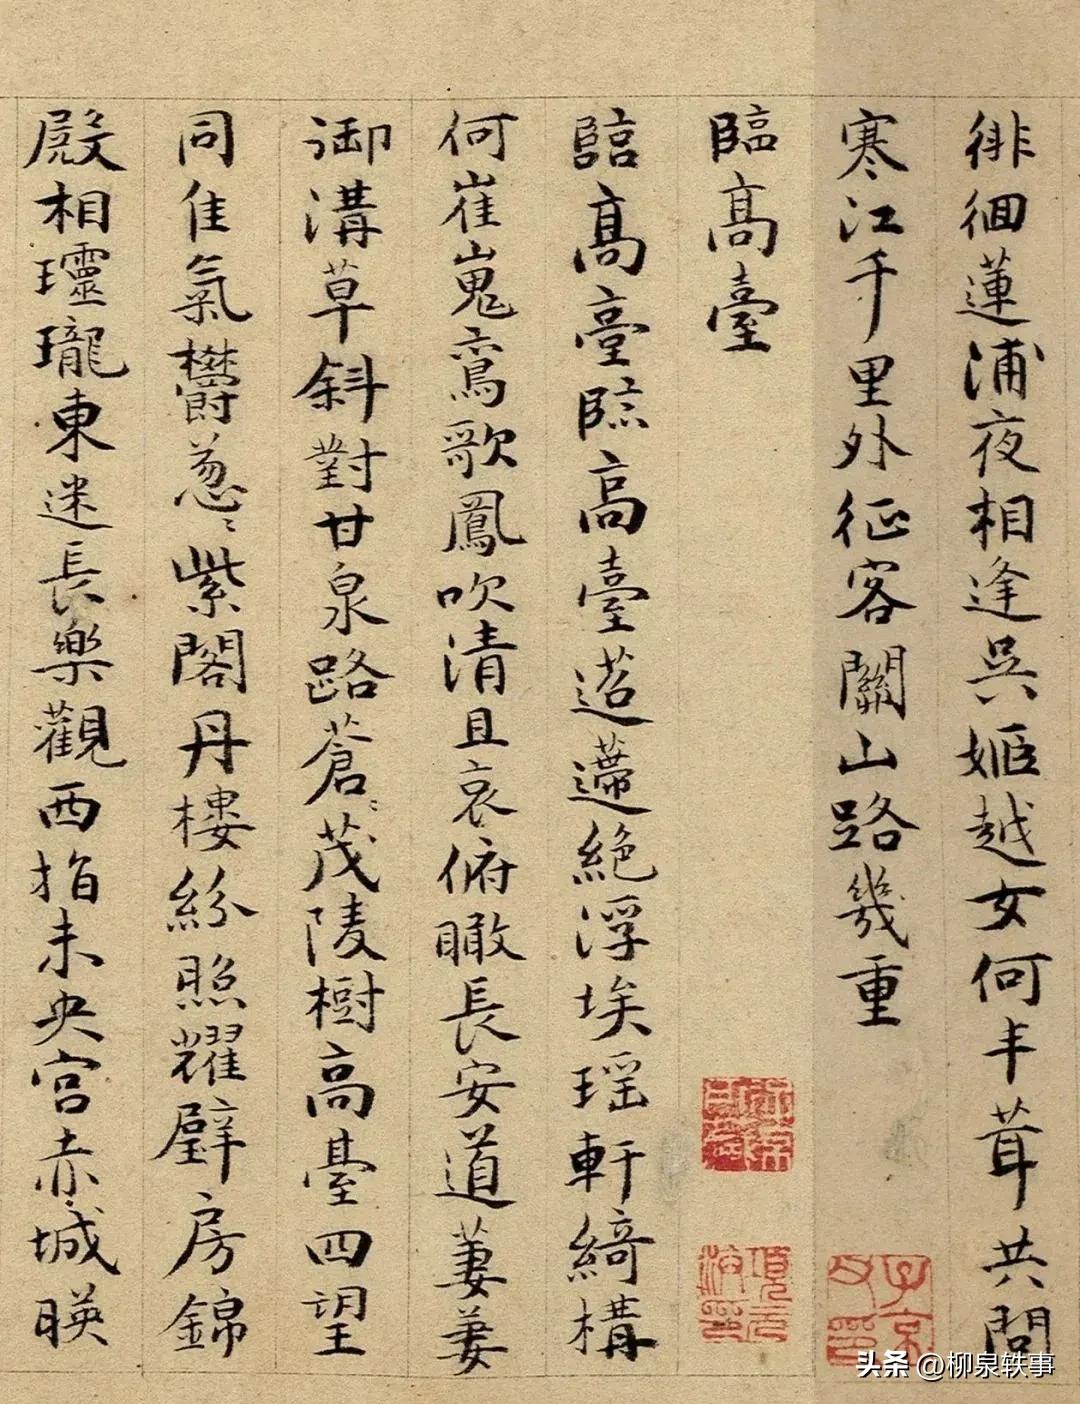 徘徊蓮浦夜相逢吳姬越女何丰茸共問
寒江千里外征客關山路幾重
臨高臺
臨高臺臨高臺迢遰絕浮埃瑶軒綺構
何崔嵬鸞歌鳳吹清且哀俯瞰長安道萋萋
御溝草斜對甘泉路蒼〻茂陵樹高臺四望
同佳氣欝葱〻紫閣丹樓紛照耀璧房錦
殿相瓏瓏東迷長樂觀西指未央宮赤城暎
項元汴印
子京父印
头条 @柳泉轶事